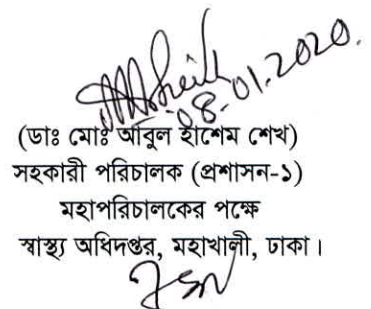 08.01.2020.
(ডাঃ মোঃ আবুল হাশেম শেখ)
সহকারী পরিচালক (প্রশাসন-১)
মহাপরিচালকের পক্ষে
স্বাস্থ্য অধিদপ্তর, মহাখালী, ঢাকা।